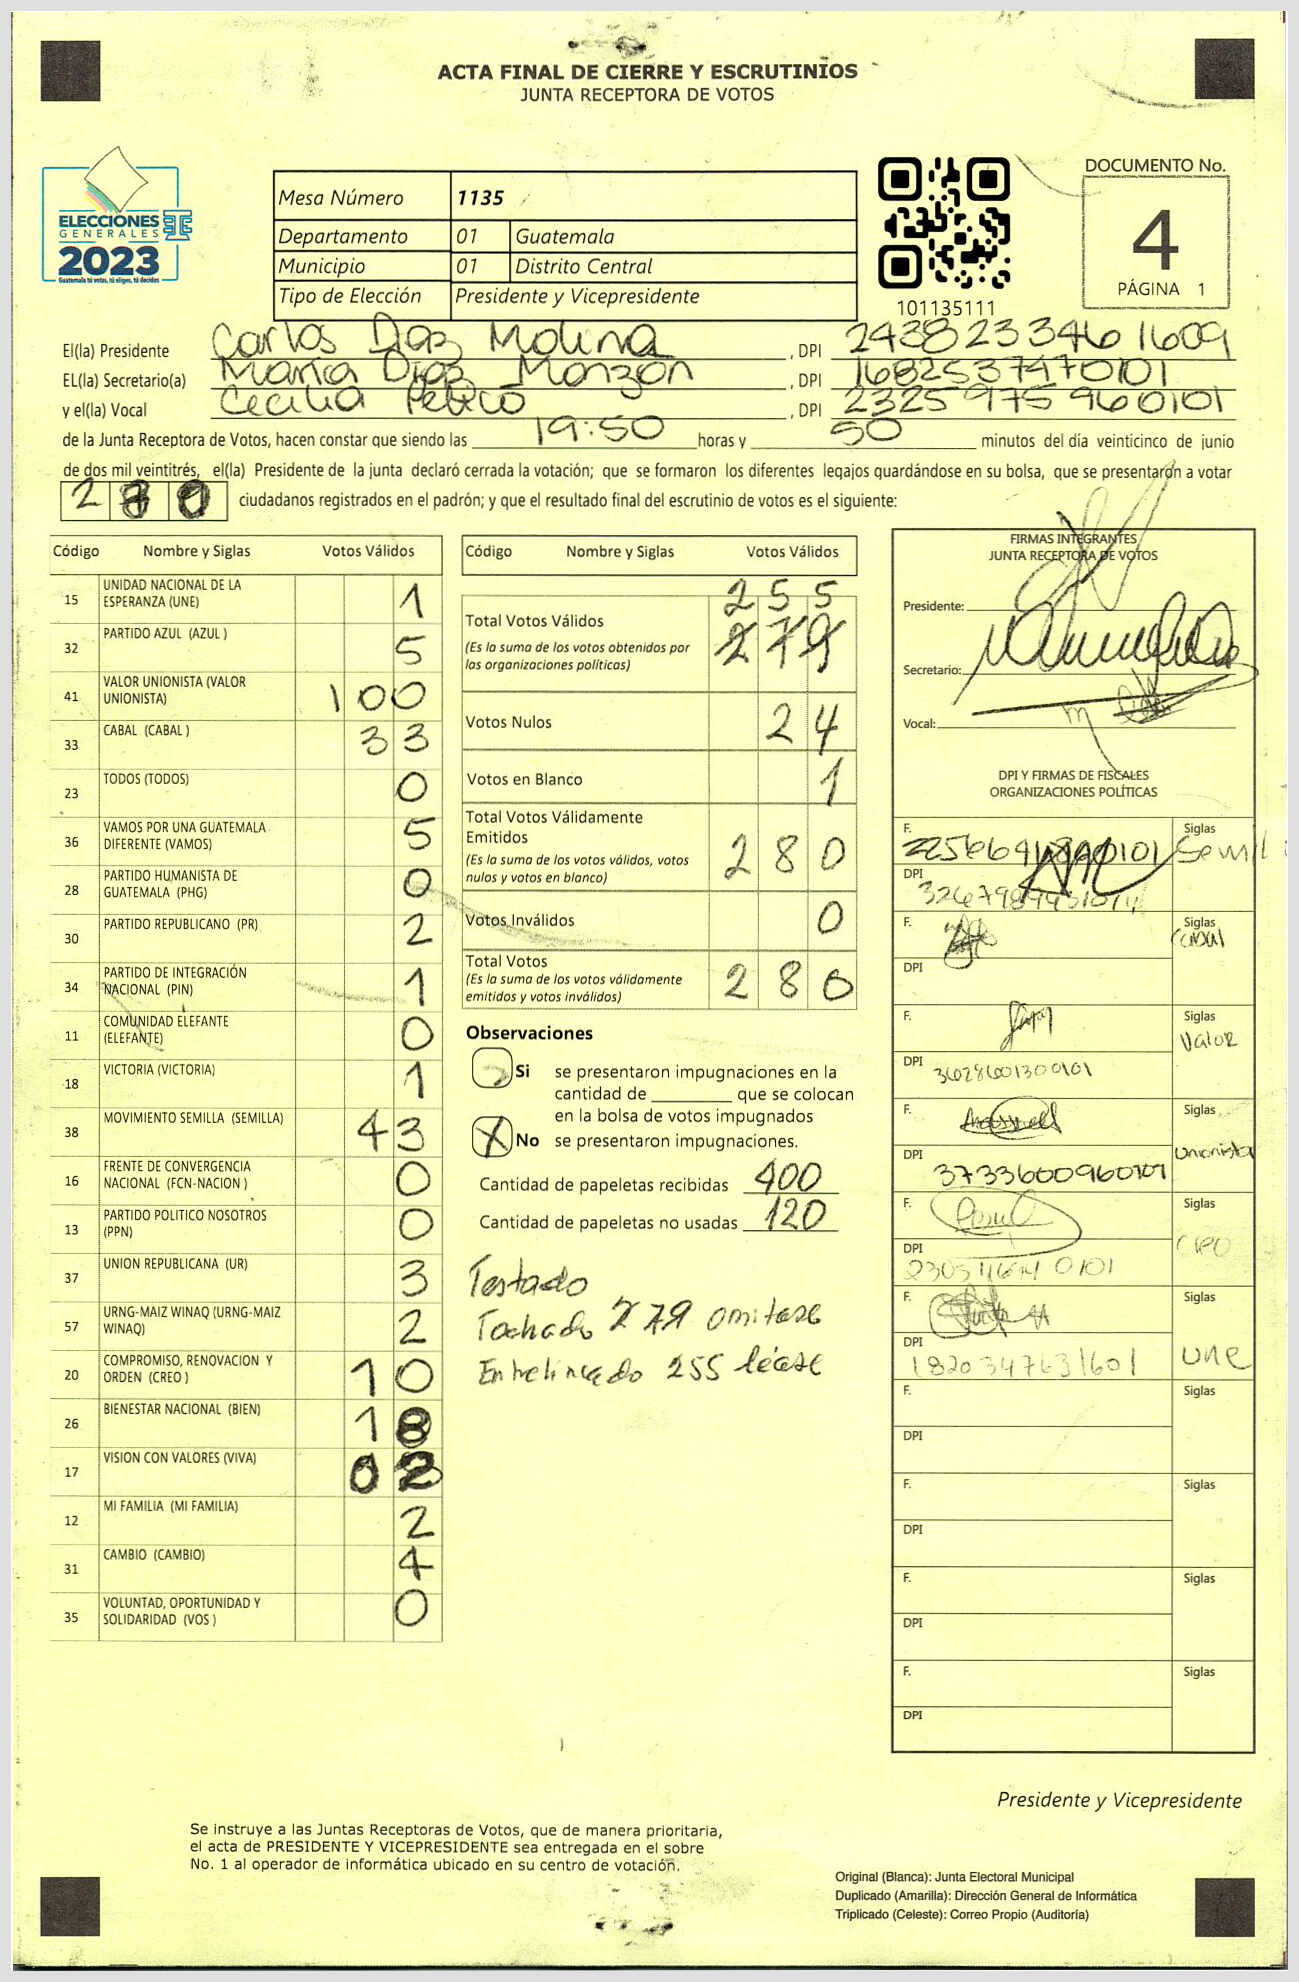 ACTA FINAL DE CIERRE Y ESCRUTINIOS
JUNTA RECEPTORA DE VOTOS
ELECCIONES
GENERALES
2023
Guatemala tú votas, tú eliges, tú decides
Mesa Número 1135
Departamento 01 Guatemala
Municipio 01 Distrito Central
Tipo de Elección Presidente y Vicepresidente
101135111
DOCUMENTO No.
4
PÁGINA 1
El(la) Presidente Carlos Díaz Molina, DPI 2438233461609
EL(la) Secretario(a) María Díaz Monzón, DPI 1682537470101
y el(la) Vocal Cecilia, DPI 2325975960101
de la Junta Receptora de Votos, hacen constar que siendo las 19:50 horas y 50 minutos del día veinticinco de junio
de dos mil veintitrés, el(la) Presidente de la junta declaró cerrada la votación; que se formaron los diferentes legajos quardándose en su bolsa, que se presentarón a votar
280 ciudadanos registrados en el padrón; y que el resultado final del escrutinio de votos es el siguiente:
Código Nombre y Siglas Votos Válidos
15 UNIDAD NACIONAL DE LA ESPERANZA (UNE) 1
32 PARTIDO AZUL (AZUL ) 5
41 VALOR UNIONISTA (VALOR UNIONISTA) 100
33 CABAL (CABAL ) 33
23 TODOS (TODOS) 0
36 VAMOS POR UNA GUATEMALA DIFERENTE (VAMOS) 5
28 PARTIDO HUMANISTA DE GUATEMALA (PHG) 0
30 PARTIDO REPUBLICANO (PR) 2
34 PARTIDO DE INTEGRACIÓN NACIONAL (PIN) 1
11 COMUNIDAD ELEFANTE (ELEFANTE) 0
18 VICTORIA (VICTORIA) 1
38 MOVIMIENTO SEMILLA (SEMILLA) 43
16 FRENTE DE CONVERGENCIA NACIONAL (FCN-NACION ) 0
13 PARTIDO POLITICO NOSOTROS (PPN) 0
37 UNION REPUBLICANA (UR) 3
57 URNG-MAIZ WINAQ (URNG-MAIZ WINAQ) 2
20 COMPROMISO, RENOVACION Y ORDEN (CREO ) 10
26 BIENESTAR NACIONAL (BIEN) 18
17 VISION CON VALORES (VIVA) 02
12 MI FAMILIA (MI FAMILIA) 2
31 CAMBIO (CAMBIO) 4
35 VOLUNTAD, OPORTUNIDAD Y SOLIDARIDAD (VOS ) 0
Código Nombre y Siglas Votos Válidos
255
Total Votos Válidos 279
(Es la suma de los votos obtenidos por las organizaciones políticas)
Votos Nulos 24
Votos en Blanco 1
Total Votos Válidamente Emitidos 280
(Es la suma de los votos válidos, votos nulos y votos en blanco)
Votos Inválidos 0
Total Votos 280
(Es la suma de los votos válidamente emitidos y votos inválidos)
Observaciones
Si se presentaron impugnaciones en la
cantidad de ________ que se colocan
en la bolsa de votos impugnados
X No se presentaron impugnaciones.
Cantidad de papeletas recibidas 400
Cantidad de papeletas no usadas 120
Testado
Tachado 279 omitase
Entrelineado 255 léase
FIRMAS INTEGRANTES
JUNTA RECEPTORA DE VOTOS
Presidente:
Secretario:
Vocal:
DPI Y FIRMAS DE FISCALES
ORGANIZACIONES POLÍTICAS
F. Siglas Semil
DPI
F. Siglas Cabal
DPI
F. Siglas Valor
DPI 36028601300101
F. Siglas Unionista
DPI 3733600960101
F. Siglas Creo
DPI
F. Siglas UNE
DPI 1820347631601
F. Siglas
DPI
F. Siglas
DPI
F. Siglas
DPI
F. Siglas
DPI
Presidente y Vicepresidente
Se instruye a las Juntas Receptoras de Votos, que de manera prioritaria,
el acta de PRESIDENTE Y VICEPRESIDENTE sea entregada en el sobre
No. 1 al operador de informática ubicado en su centro de votación.
Original (Blanca): Junta Electoral Municipal
Duplicado (Amarilla): Dirección General de Informática
Triplicado (Celeste): Correo Propio (Auditoría)